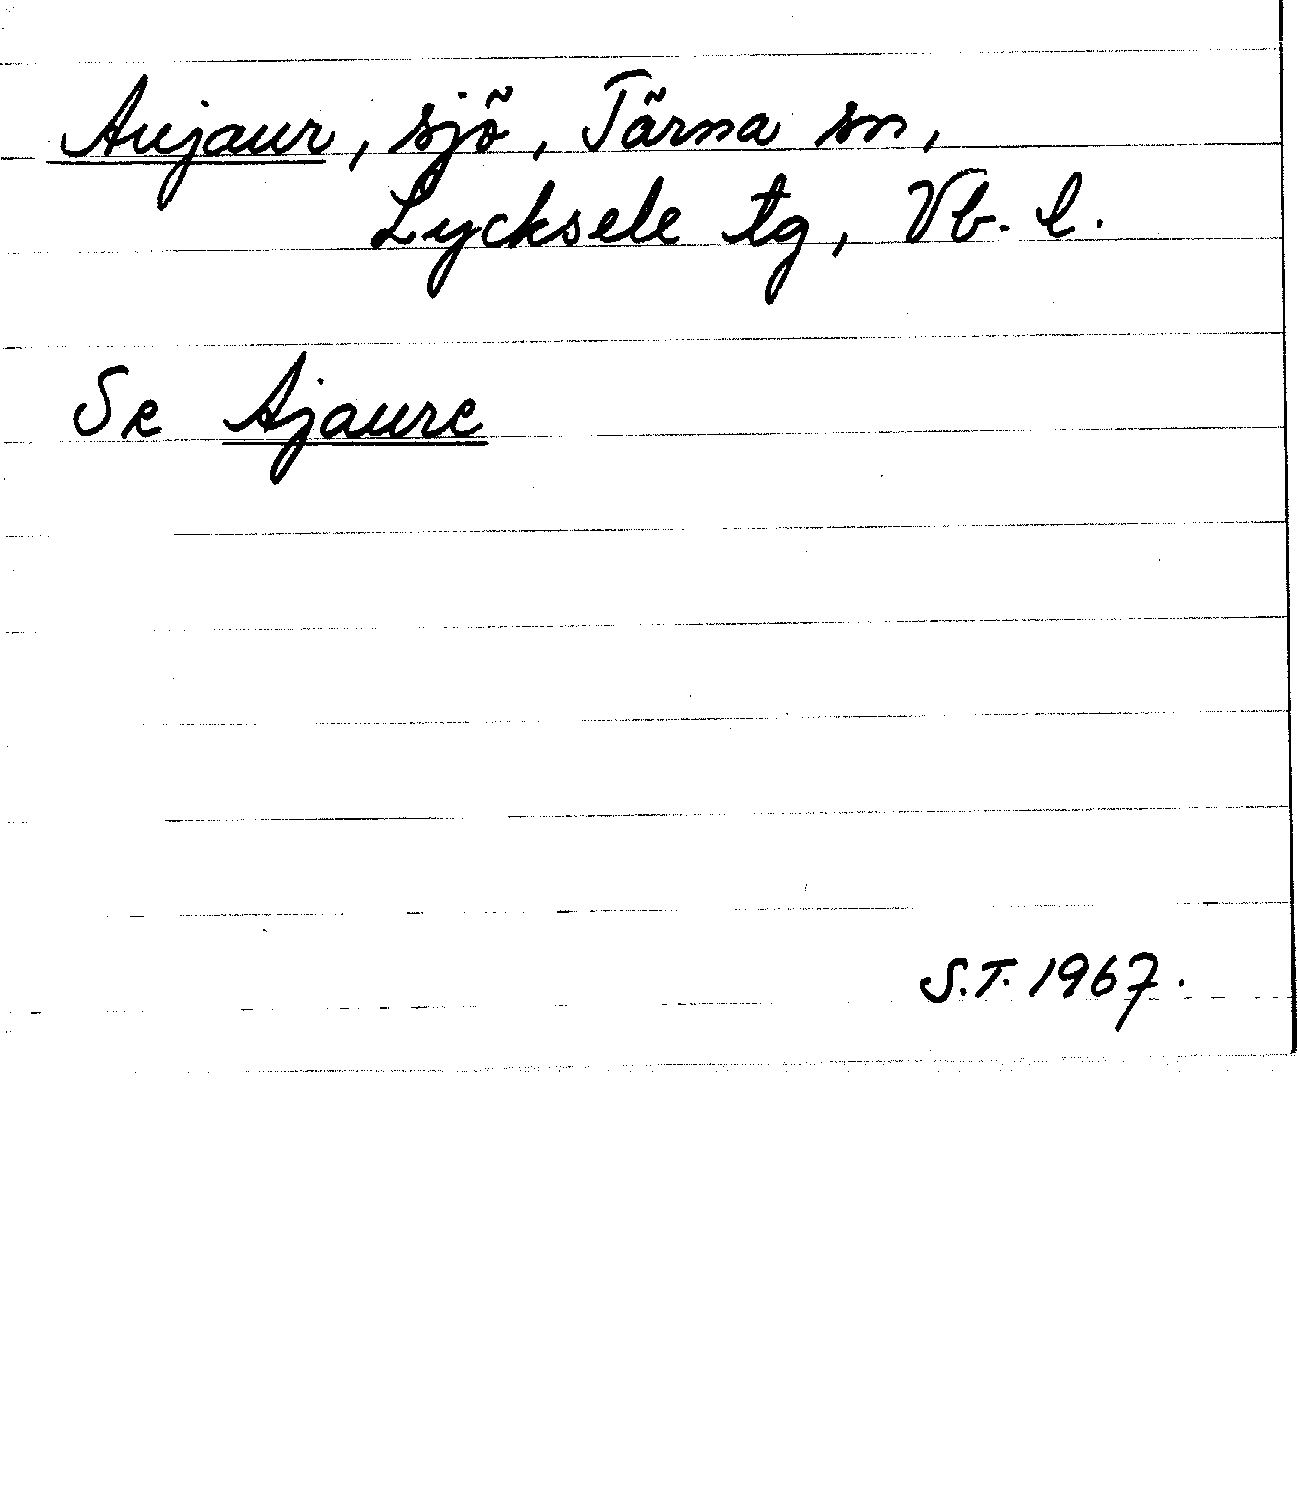 Aujaur, sjö, Tärna sn,
Lycksele tg, Vb. l.
Se Ajaure
S.T. 1967.